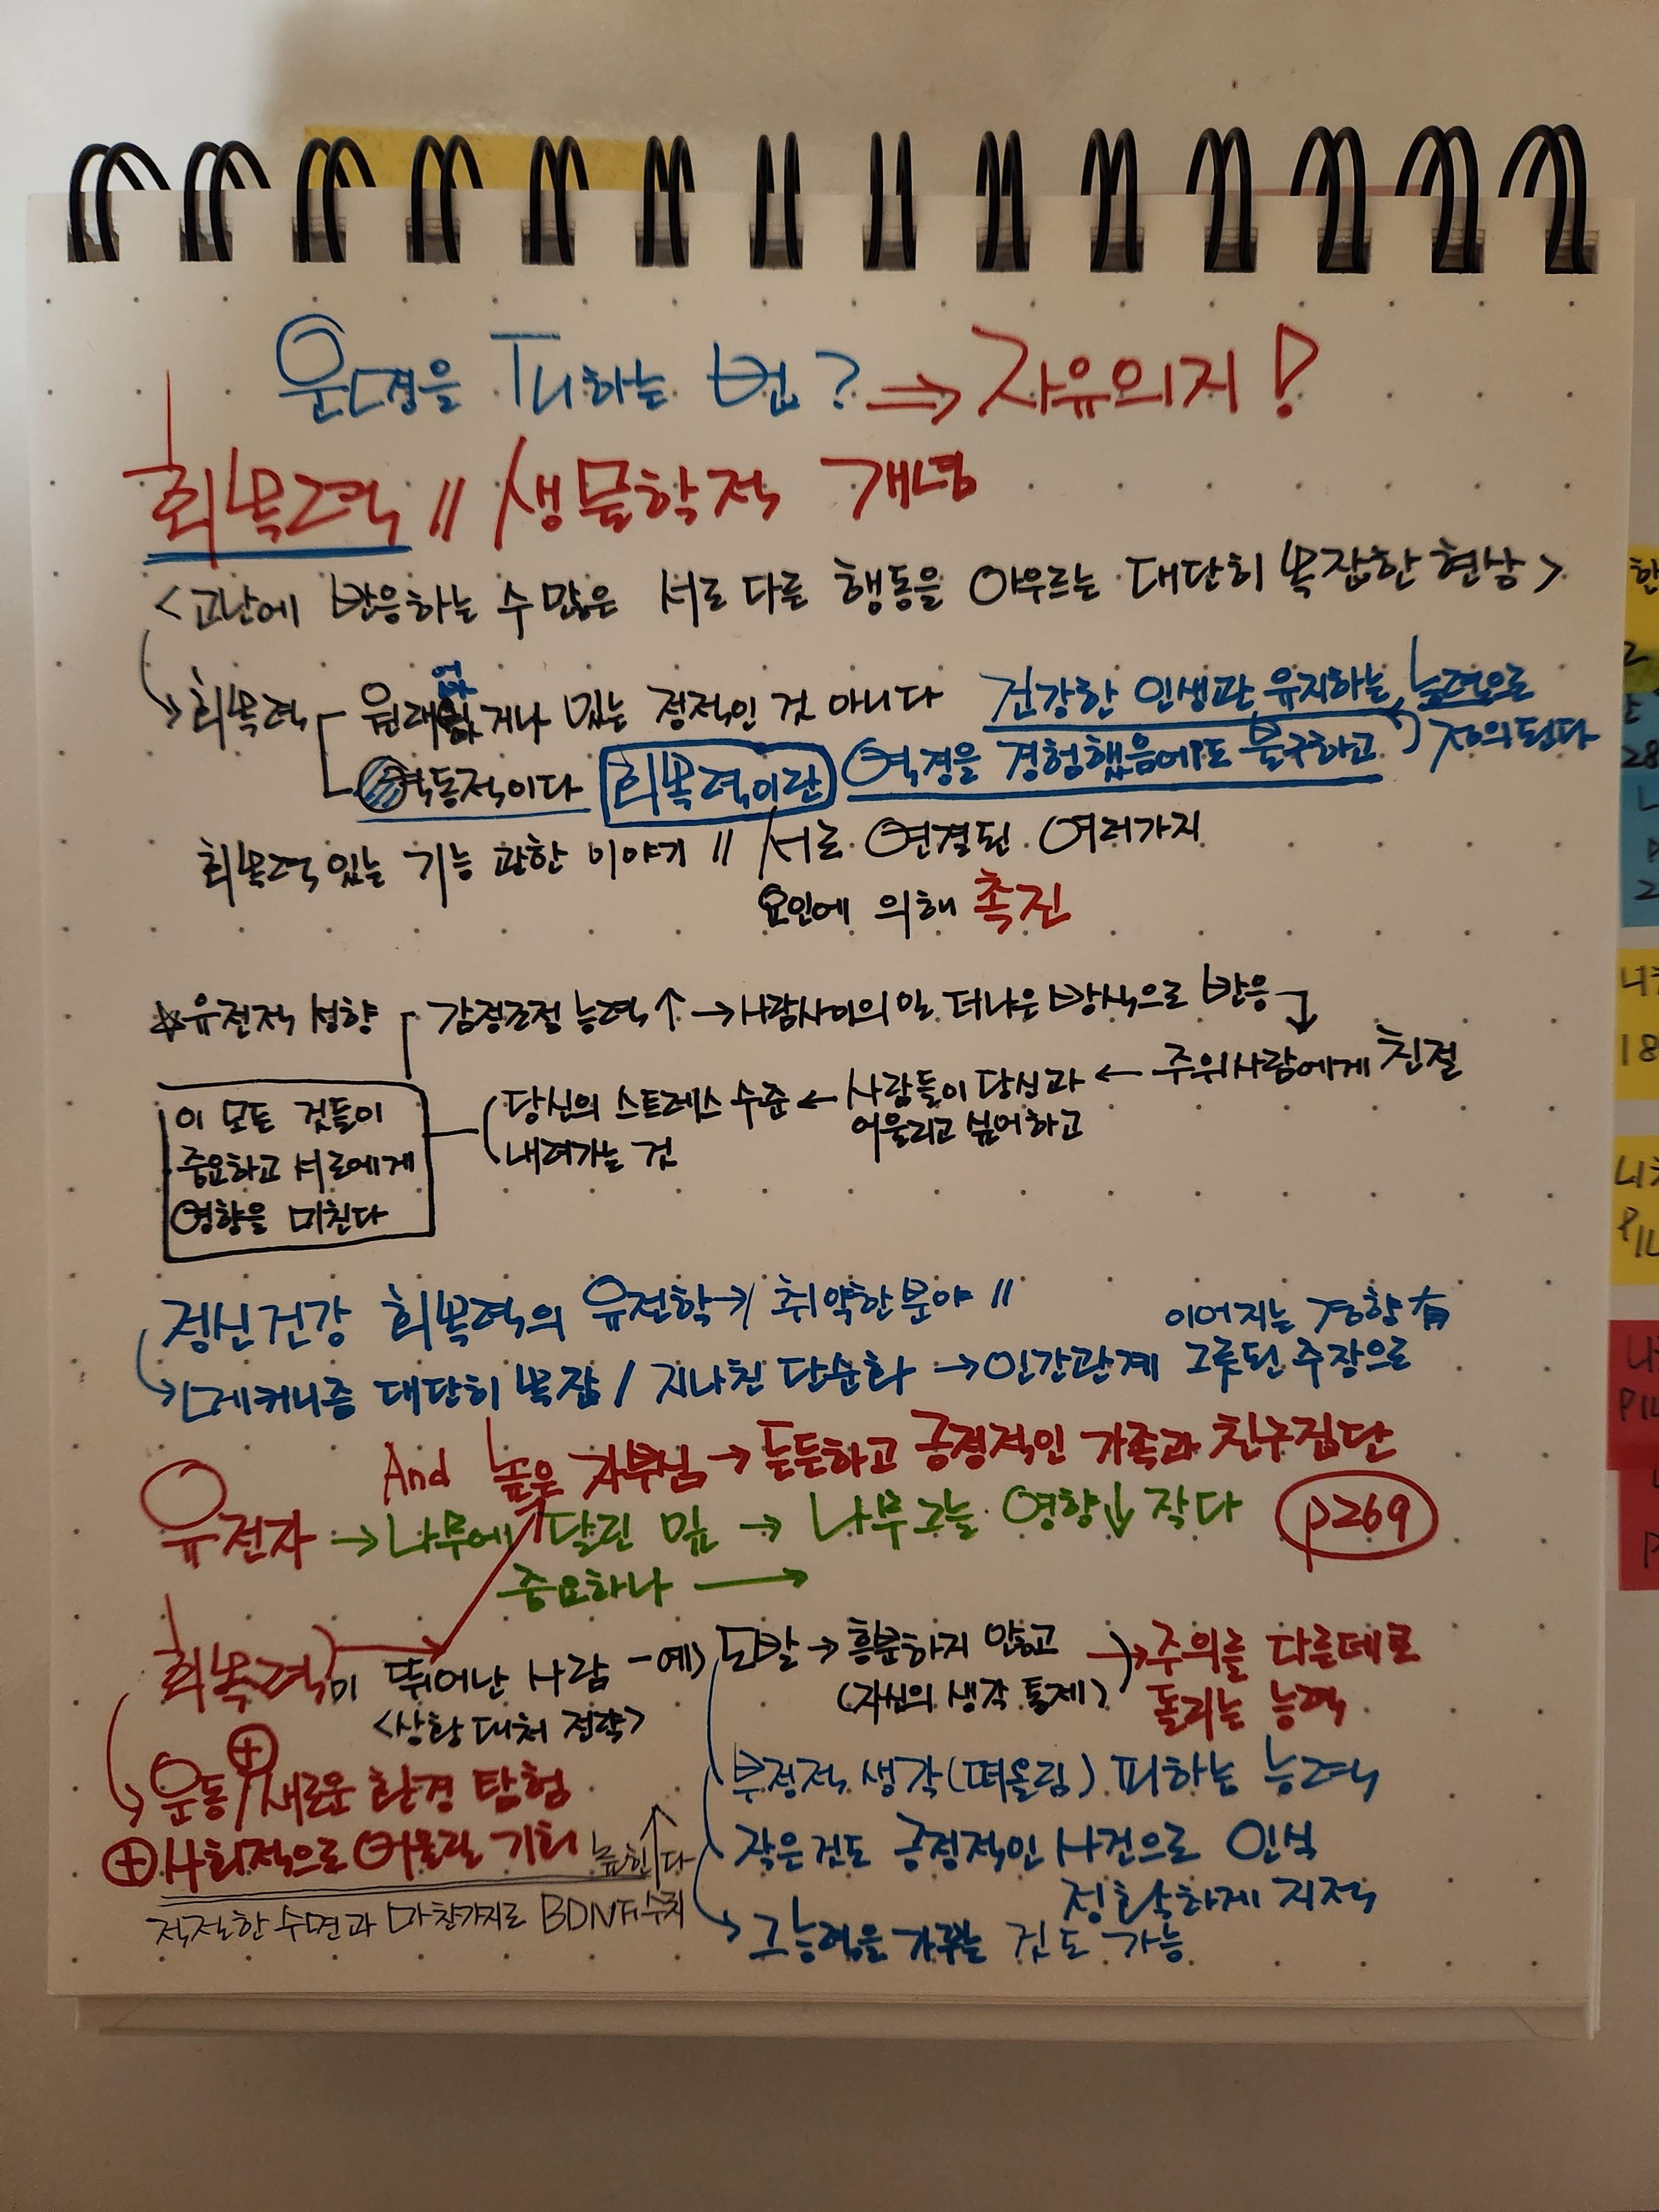 운명을 피하는 법? ⇒ 자유의지!
회복력 // 생물학적 개념
<고난에 반응하는 수많은 서로 다른 행동을 아우르는 대단히 복잡한 현상>
→ 회복력 원래 없거나 있는 정적인 것 아니다 건강한 인생관 유지하는 능력으로
역동적이다 회복력이란 (역경을 경험했음에도 불구하고) 정의된다
회복력 있는 기능 관한 이야기 // 서로 연결된 여러가지
요인에 의해 촉진
☆유전적 성향 감정조절 능력↑ → 사람사이의 일 더나은 방식으로 반응
당신의 스트레스 수준 ← 사람들이 당신과 ← 주위사람에게 친절
내려가는 것 어울리고 싶어하고
이 모든 것들이
중요하고 서로에게
영향을 미친다
정신건강 회복력의 유전학 → 취약한 분야 //
이어지는 경향 有
→ 메커니즘 대단히 복잡 / 지나친 단순화 → 인간관계 그릇된 주장으로
And 높은 자부심 → 든든하고 긍정적인 가족과 친구집단
유전자 → 나무에 달린 잎 → 나무그늘 영향↓ 작다 p269
중요하나 →
회복력이 뛰어난 사람 -예) 도발 → 흥분하지 않고 → 주의를 다른데로
<상황 대처 전략> (자신의 생각 통제) 돌리는 능력
운동 ⊕ 새로운 환경 탐험
부정적 생각(떠올림) 피하는 능력
⊕ 사회적으로 어울릴 기회 높힌다↑
작은것도 긍정적인 사건으로 인식
적절한 수면과 마찬가지로 BDNF수치
정확하게 지적
→ 그 능력을 가꾸는 것도 가능